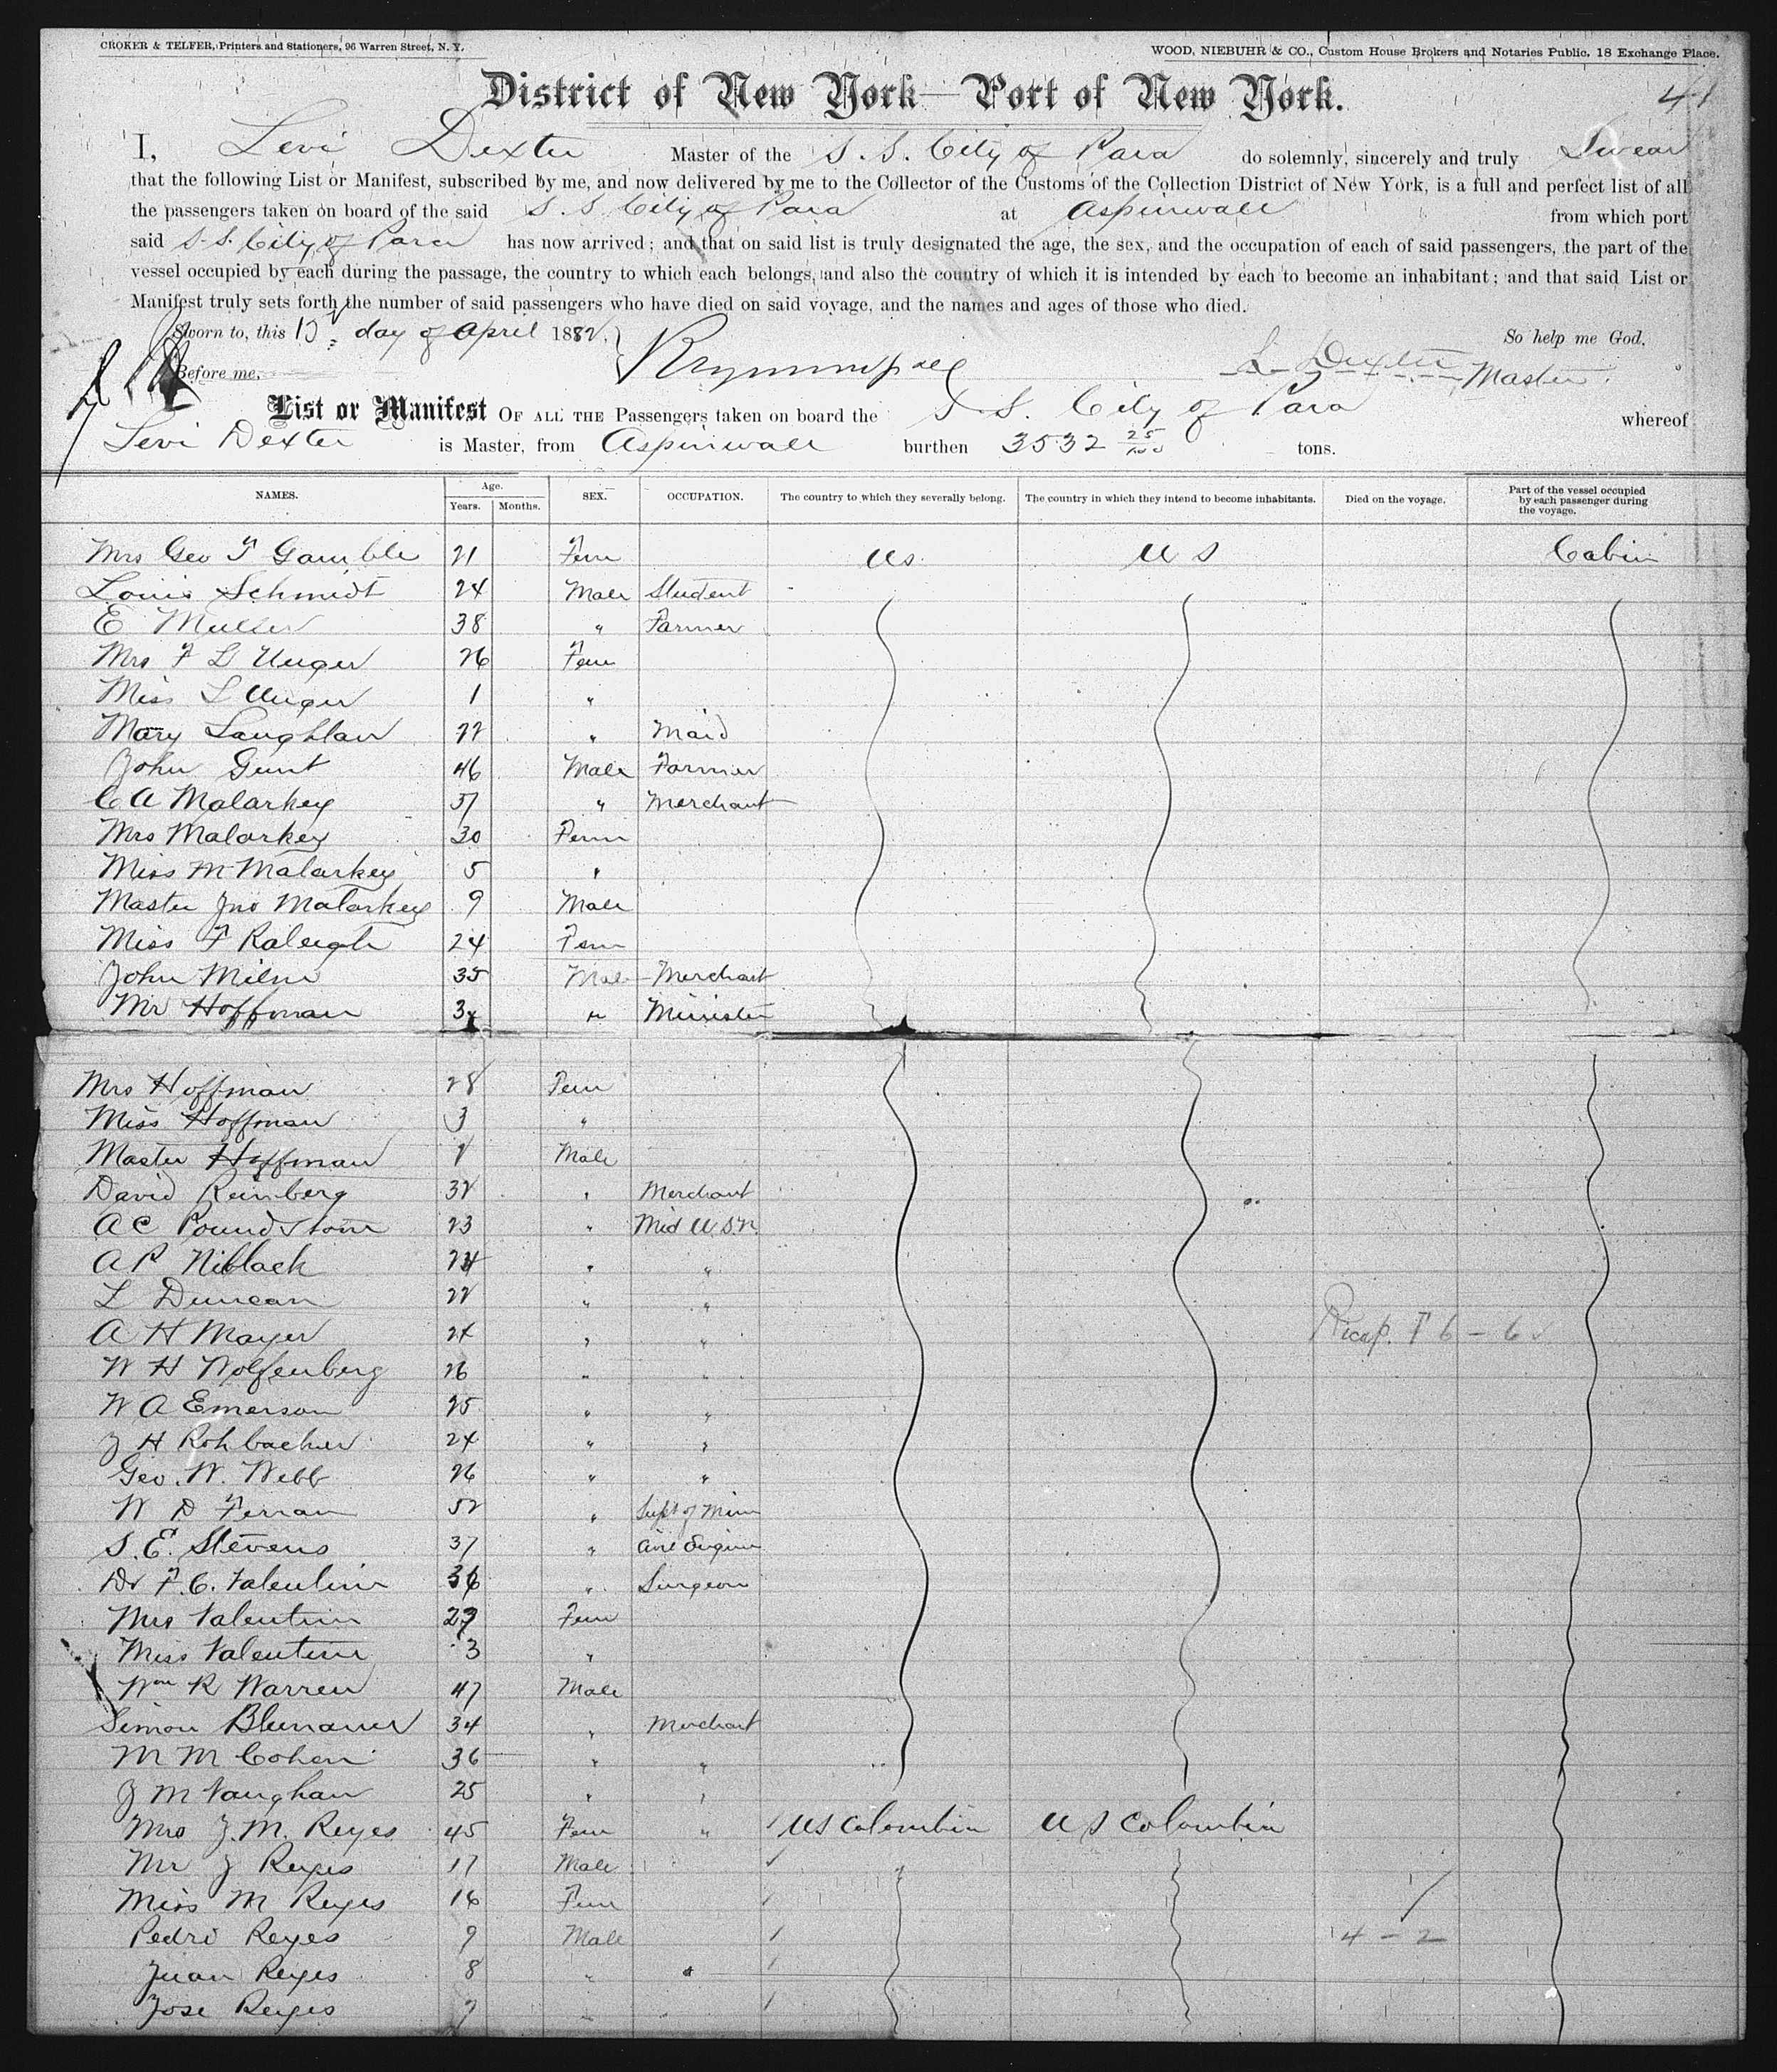 CROKER & TELFER, Printers and Stationers, 96 Warren Street, N. Y.
WOOD, NIEBUHR & CO., Custom House Brokers and Notaries Public, 18 Exchange Place.
District of New York—Port of New York.
41
I, Levi Dexter Master of the S. S. City of Para do solemnly, sincerely and truly Swear
that the following List or Manifest, subscribed by me, and now delivered by me to the Collector of the Customs of the Collection District of New York, is a full and perfect list of all
the passengers taken on board of the said S. S City of Para at Aspinwall from which port
said S. S. City of Para has now arrived; and that on said list is truly designated the age, the sex, and the occupation of each of said passengers, the part of the
vessel occupied by each during the passage, the country to which each belongs, and also the country of which it is intended by each to become an inhabitant; and that said List or
Manifest truly sets forth the number of said passengers who have died on said voyage, and the names and ages of those who died.
Sworn to, this day of April 1882. So help me God,
Before me, L. Dexter Master
List or Manifest OF ALL THE Passengers taken on board the S. S. City of Para whereof
Levi Dexter is Master, from Aspinwall burthen 3532 25/100 tons.
NAMES. Age. Years. Months. SEX. OCCUPATION. The country to which they severally belong. The country in which they intend to become inhabitants. Died on the voyage. Part of the vessel occupied by each passenger during the voyage.
Mrs Geo F Gamble 21 Fem US. U S Cabin
Louis Schmidt 24 Male Student
E Muller 38 " Farmer
Mrs F L Unger 26 Fem
Miss L Unger 1 "
Mary Laughlan 22 " Maid
John Gunt 46 Male Farmer
C A Malarkey 37 " Merchant
Mrs Malarkey 30 Fem
Miss M Malarkey 5 "
Master Jno Malarkey 9 Male
Miss F Raleigh 24 Fem
John Milne 35 Male Merchant
Mr Hoffman " Minister
Mrs Hoffman 28 Fem
Miss Hoffman 3 "
Master Hoffman Male
David Reinberg 32 " Merchant
A C Poundstone 23 " Mid U.S.N.
A P Niblack 24 " "
L Duncan 22 " "
A H Mayer 24 " " Recap. 6 - 6
W H Wolfenberg 26 " "
W A Emerson 25 " "
J H Rohbacher 24 " "
Geo. W. Webb 26 " "
W D Ferran 52 " Supt of Mine
S. E. Stevens 37 " Civil Engineer
Dr F. C. Valentine 36 " Surgeon
Mrs Valentine 29 Fem
Miss Valentine 3 "
Wm R Warren 47 Male
Simon Blumauer 34 " Merchant
M M Cohen 36 " "
J M Vaughan 25 " "
Mrs J. M. Reyes 45 Fem " US Colombia U S Colombia
Mr J Reyes 17 Male
Miss M Reyes 16 Fem
Pedro Reyes 9 Male 4 - 2
Juan Reyes 8 "
Jose Reyes 7 "